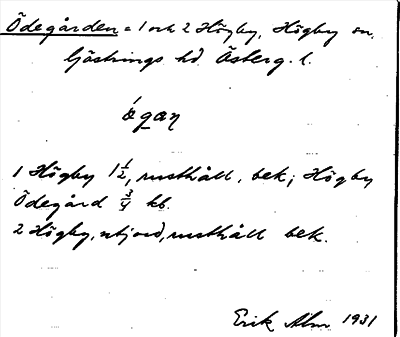 Ödegården = 1 och 2 Högby, Högby sn,
Göstrings hd. Österg. l.
ǿgaɳ
1 Högby 1 1/2, rusthåll, bek; Högby
Ödegård 3/4 kb.
2 Högby, utjord, rusthåll bek.
Erik Alm 1931